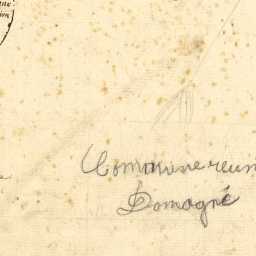 Commune réun
Domagné